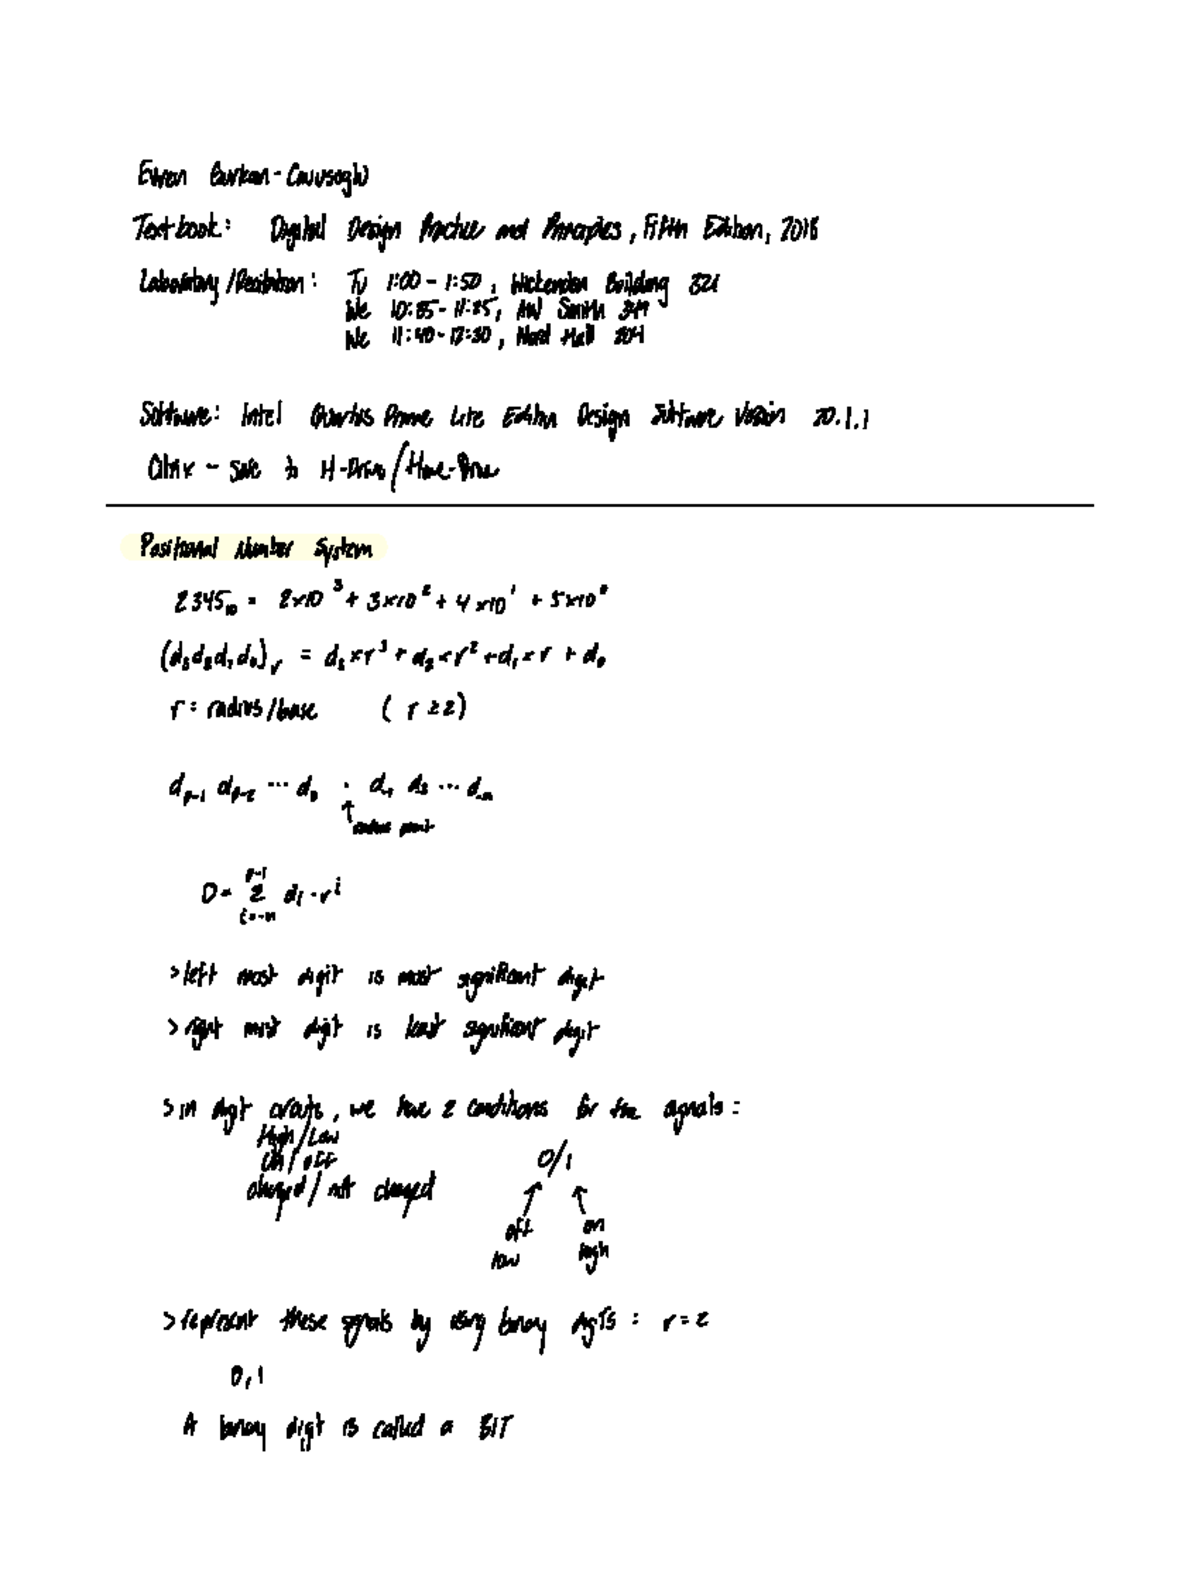 Textbook: Digital Design Practice and Principles, Fifth Edition, 2018
Laboratory/Recitation: Tu 1:00 - 1:50, Wickenden Building 321
We 10:35 - 11:25, AW Smith 349
We 11:40 - 12:30, Nord Hall 204
Software: Intel Quartus Prime Lite Edition Design Software Version 20.1.1
Citrix - Save to H-Drive/Home-Drive
Positional Number System
2345₁₀ = 2×10³ + 3×10² + 4×10¹ + 5×10⁰
(d₃d₂d₁d₀)ᵣ = d₃×r³ + d₂×r² + d₁×r + d₀
r = radius/base (r ≥ 2)
dₚ₋₁ dₚ₋₂ ... d₀ . d₋₁ d₋₂ ... d₋ₙ
↑
point
p-1
D = Σ dᵢ · rⁱ
i=-n
> left most digit is most significant digit
> right most digit is least significant digit
> in digit circuits, we have 2 conditions for the signals:
High/Low
On/off
charged/not charged
0/1
off on
low high
> represent these signals by using binary digits : r = 2
0,1
A binary digit is called a BIT